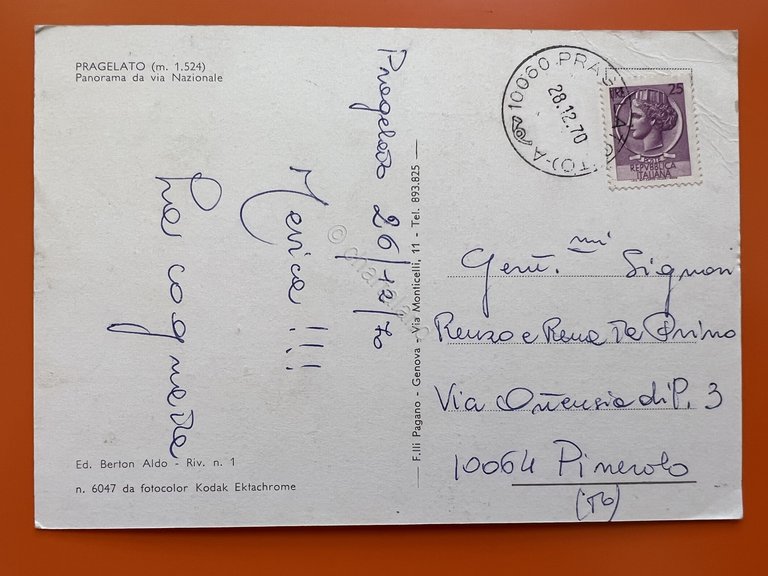 PRAGELATO (m. 1.524)
Panorama da via Nazionale
Pragelato 26/12/70
!!!
La cognata
Ed. Berton Aldo - Riv. n. 1
n. 6047 da fotocolor Kodak Ektachrome
F.lli Pagano - Genova - Via Monticelli, 11 - Tel. 893.825
10060 PRAGELATO (TO) A
28.12.70
25
POSTE
REPVBBLICA
ITALIANA
Gent.mi Signori
Renzo e Rena De Primo
Via Ortensia di P. 3
10064 Pinerolo
(To)